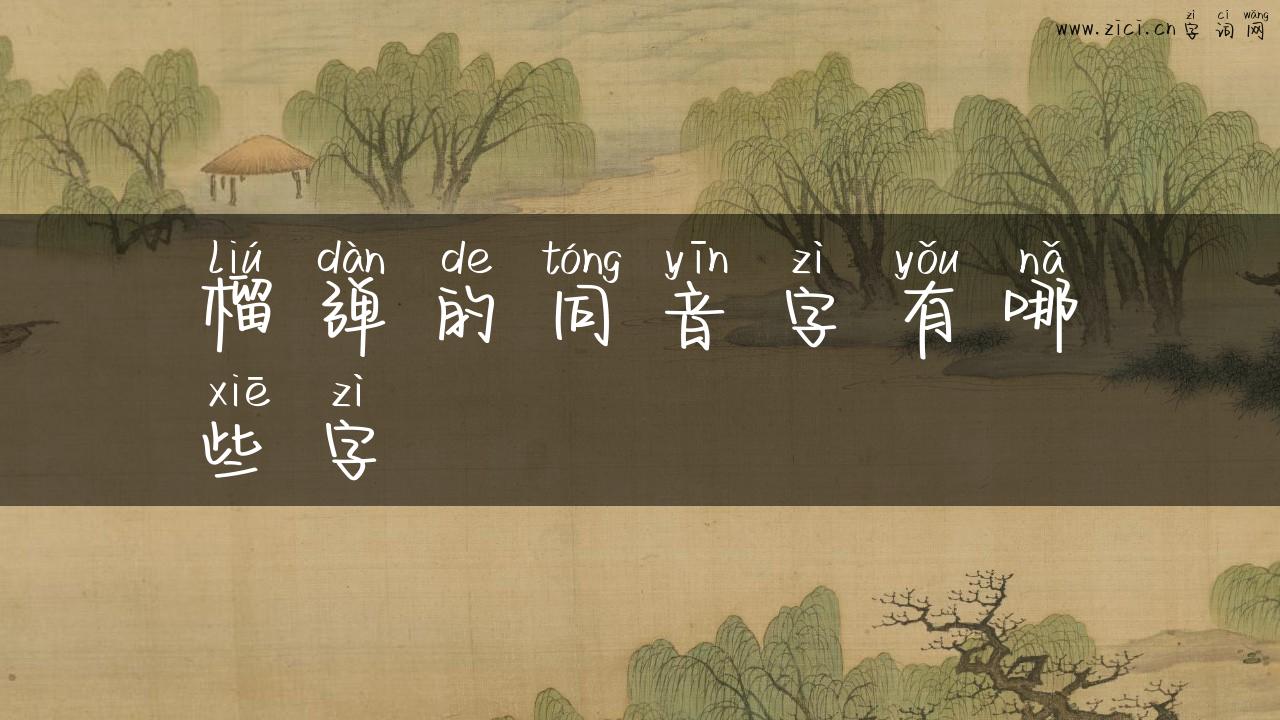 zì cí wǎng
www.zici.cn字词网
liú dàn de tóng yīn zì yǒu nǎ
榴弹的同音字有哪
xiē zì
些字